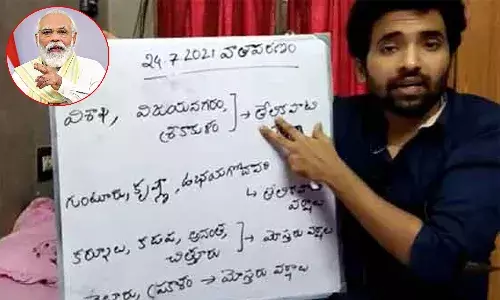 24.7.2021 వాతావరణం
విశాఖ, విజయనగరం, → తేలికపాటి
శ్రీకాకుళం
గుంటూరు, కృష్ణా, ఉభయగోదావరి
↳ తేలికపాటి
వర్షాలు
కర్నూలు, కడప, అనంత, → మోస్తరు వర్షాలు
చిత్తూరు
ప్రకాశం → మోస్తరు వర్షాలు